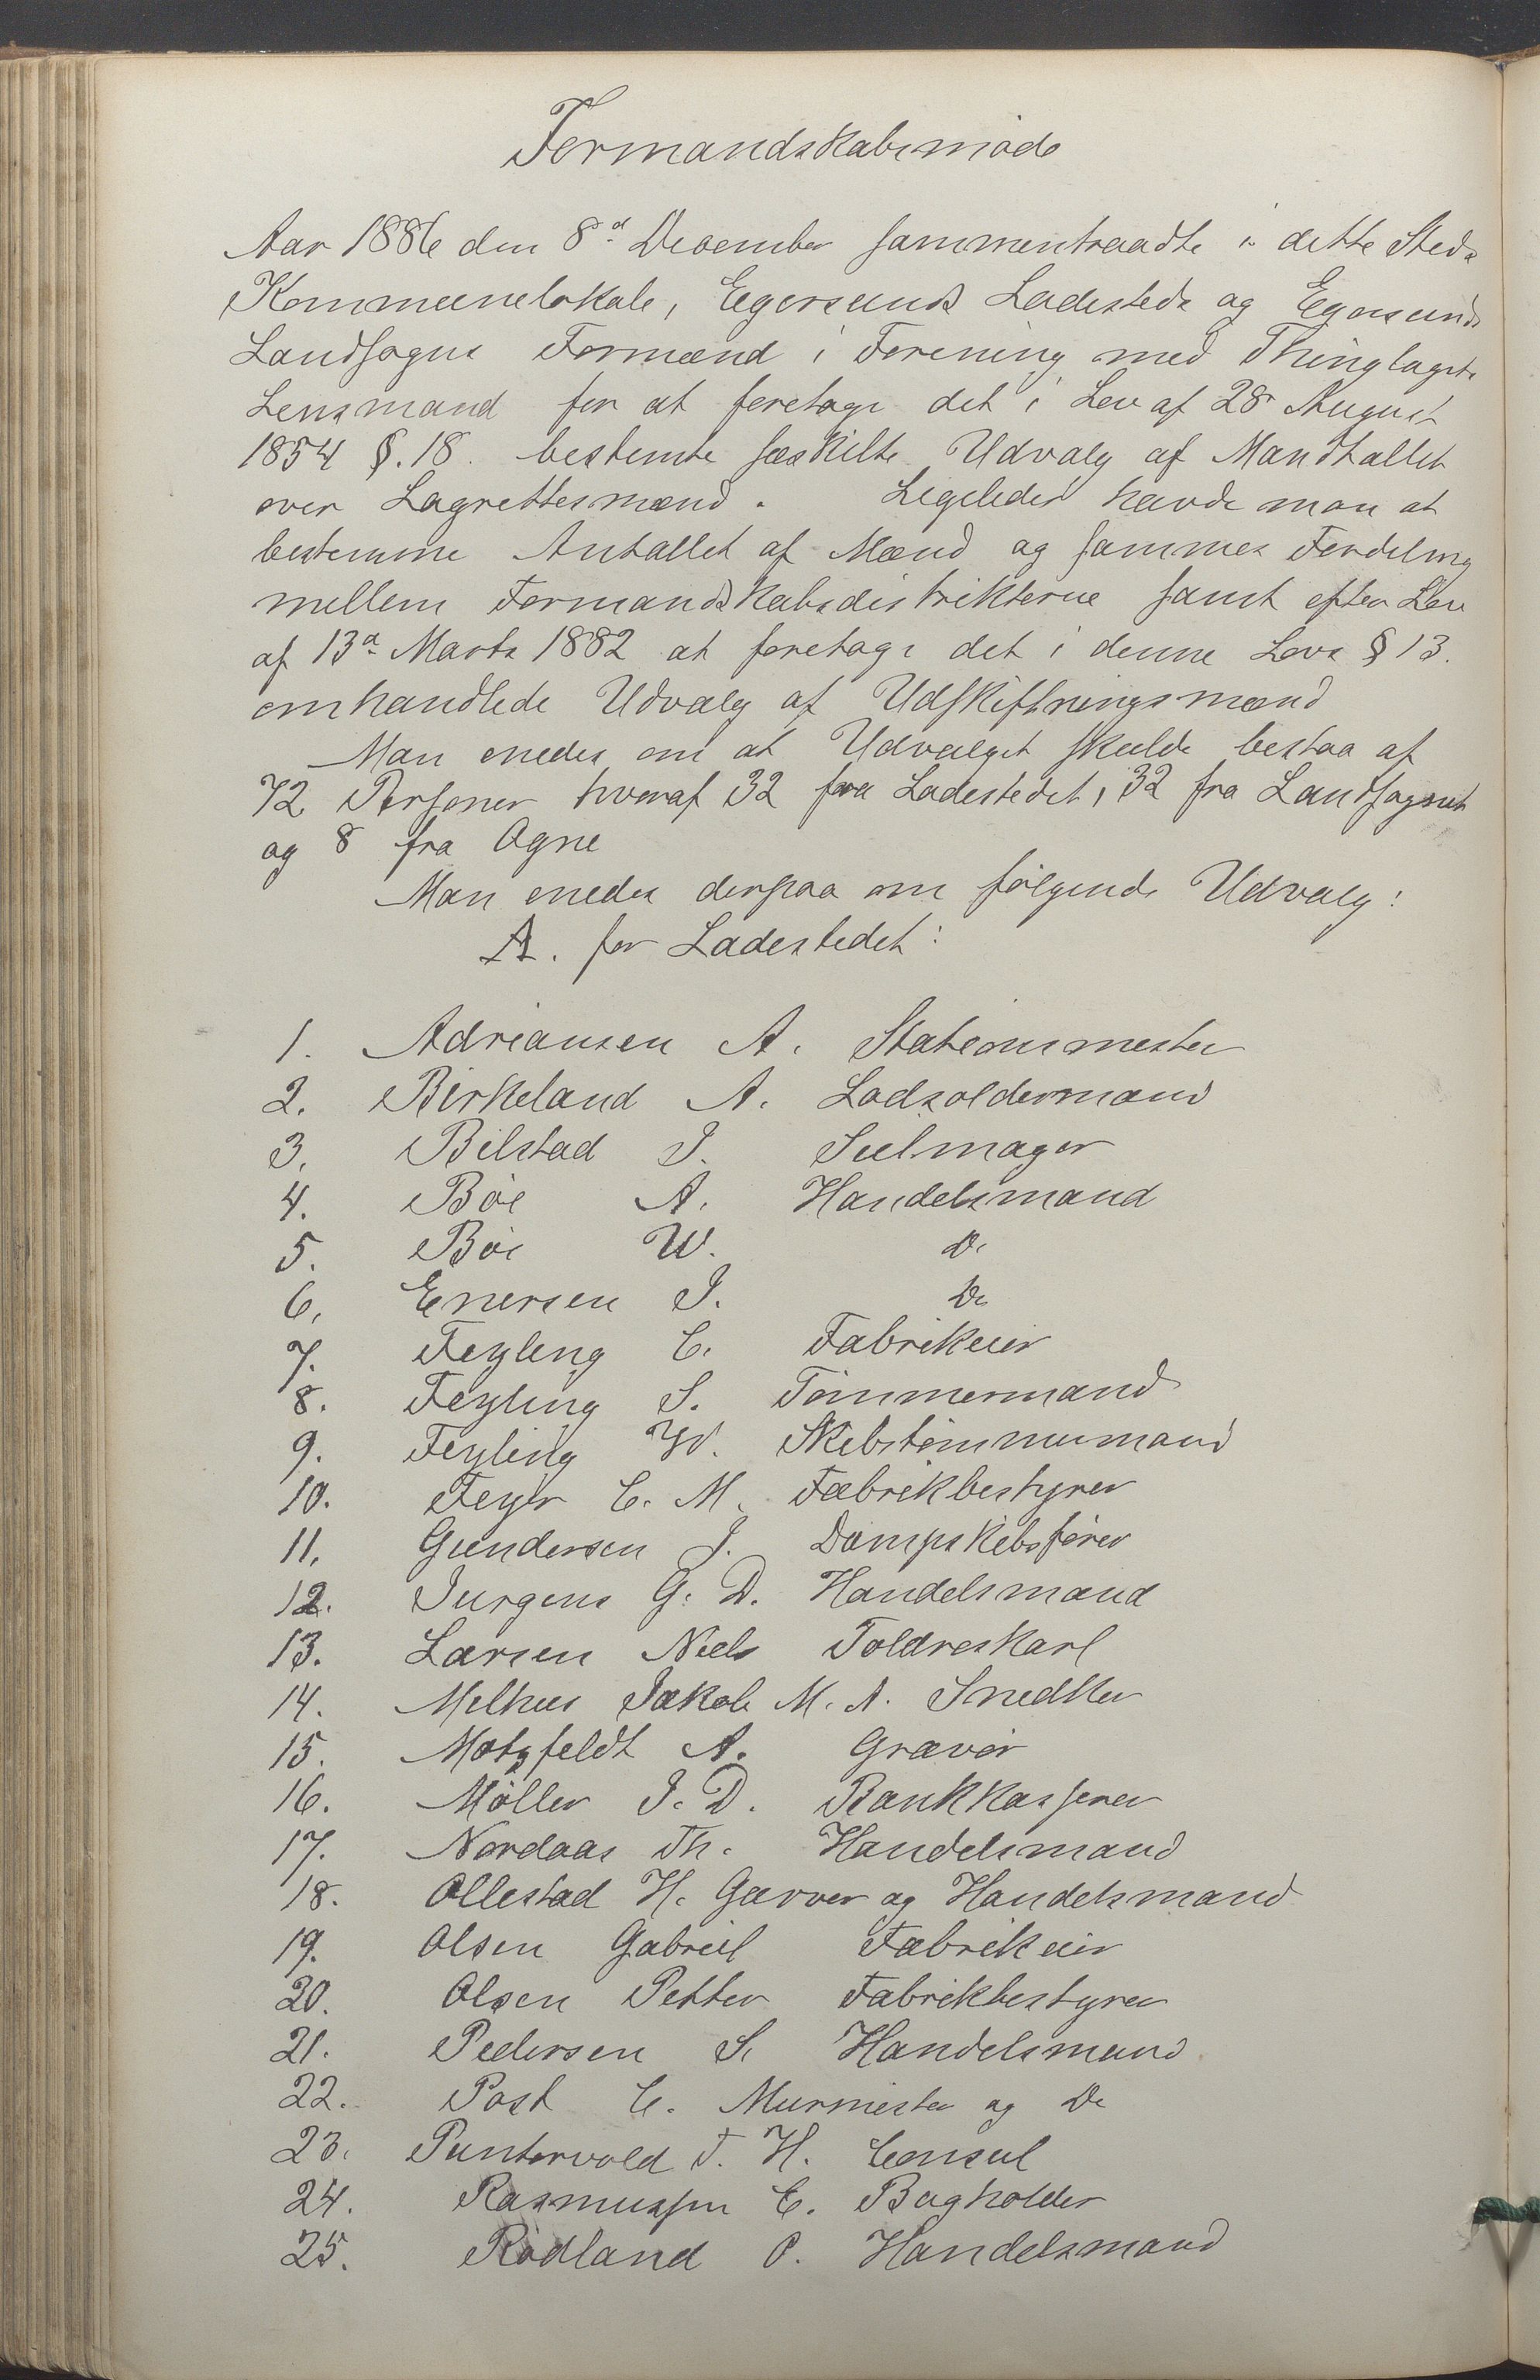 Formandskabsmøde
Aar 1886 den 8d December sammentraadte i dette Steds
Kommunelokale, Egersunds Ladesteds og Egersunds
Landsogns Formænd i Forening med Thinglagets
Lensmand for at foretage det i Lov af 28 August
1854 §. 18. bestemte særskilte Udvalg af Mandtallet
over Lagrettesmænd. Ligeledes havde man at
bestemme Antallet af Mænd og sammes Fordeling
mellem Formandskabsdistrikterne samt efter Lov
af 13d Marts 1882 at foretage det i denne Lovs § 13.
omhandlede Udvalg af Udskiftningsmænd
Man enedes om at Udvalget skulde bestaa af
72 Personer hvoraf 32 fra Ladestedet, 32 fra Landsognet
og 8 fra Ogne
Man enedes derpaa om følgende Udvalg:
A. for Ladestedet:
1. Adriansen A. Stationsmester
2. Birkeland A. Lodsoldermand
3. Bilstad J. Seilmager
4. Bøe A. Handelsmand
5. Bøe W. Do
6. Enersen J. Do
7. Feyling C. Fabrikeier
8. Feyling S. Tømmermand
9. Feyling W. Skibstømmermand
10. Feyer C. M. Fabrikbestyrer
11. Gundersen J. Dampskibsfører
12. Jurgens G. D. Handelsmand
13. Larsen Niels Toldreskarl
14. Melhus Jakob M. A. Snedker
15. Motzfeldt A. Gravør
16. Møller J. D. Bankkasserer
17. Nordaas Th. Handelsmand
18. Ollestad H. Garver og Handelsmand
19. Olsen Gabriel Fabrikeier
20. Olsen Petter Fabrikbestyrer
21. Pedersen S. Handelsmand
22. Post C. Murmester og Do
23. Puntervold T. H. Consul
24. Rasmussen C. Bogholder
25. Rødland O. Handelsmand